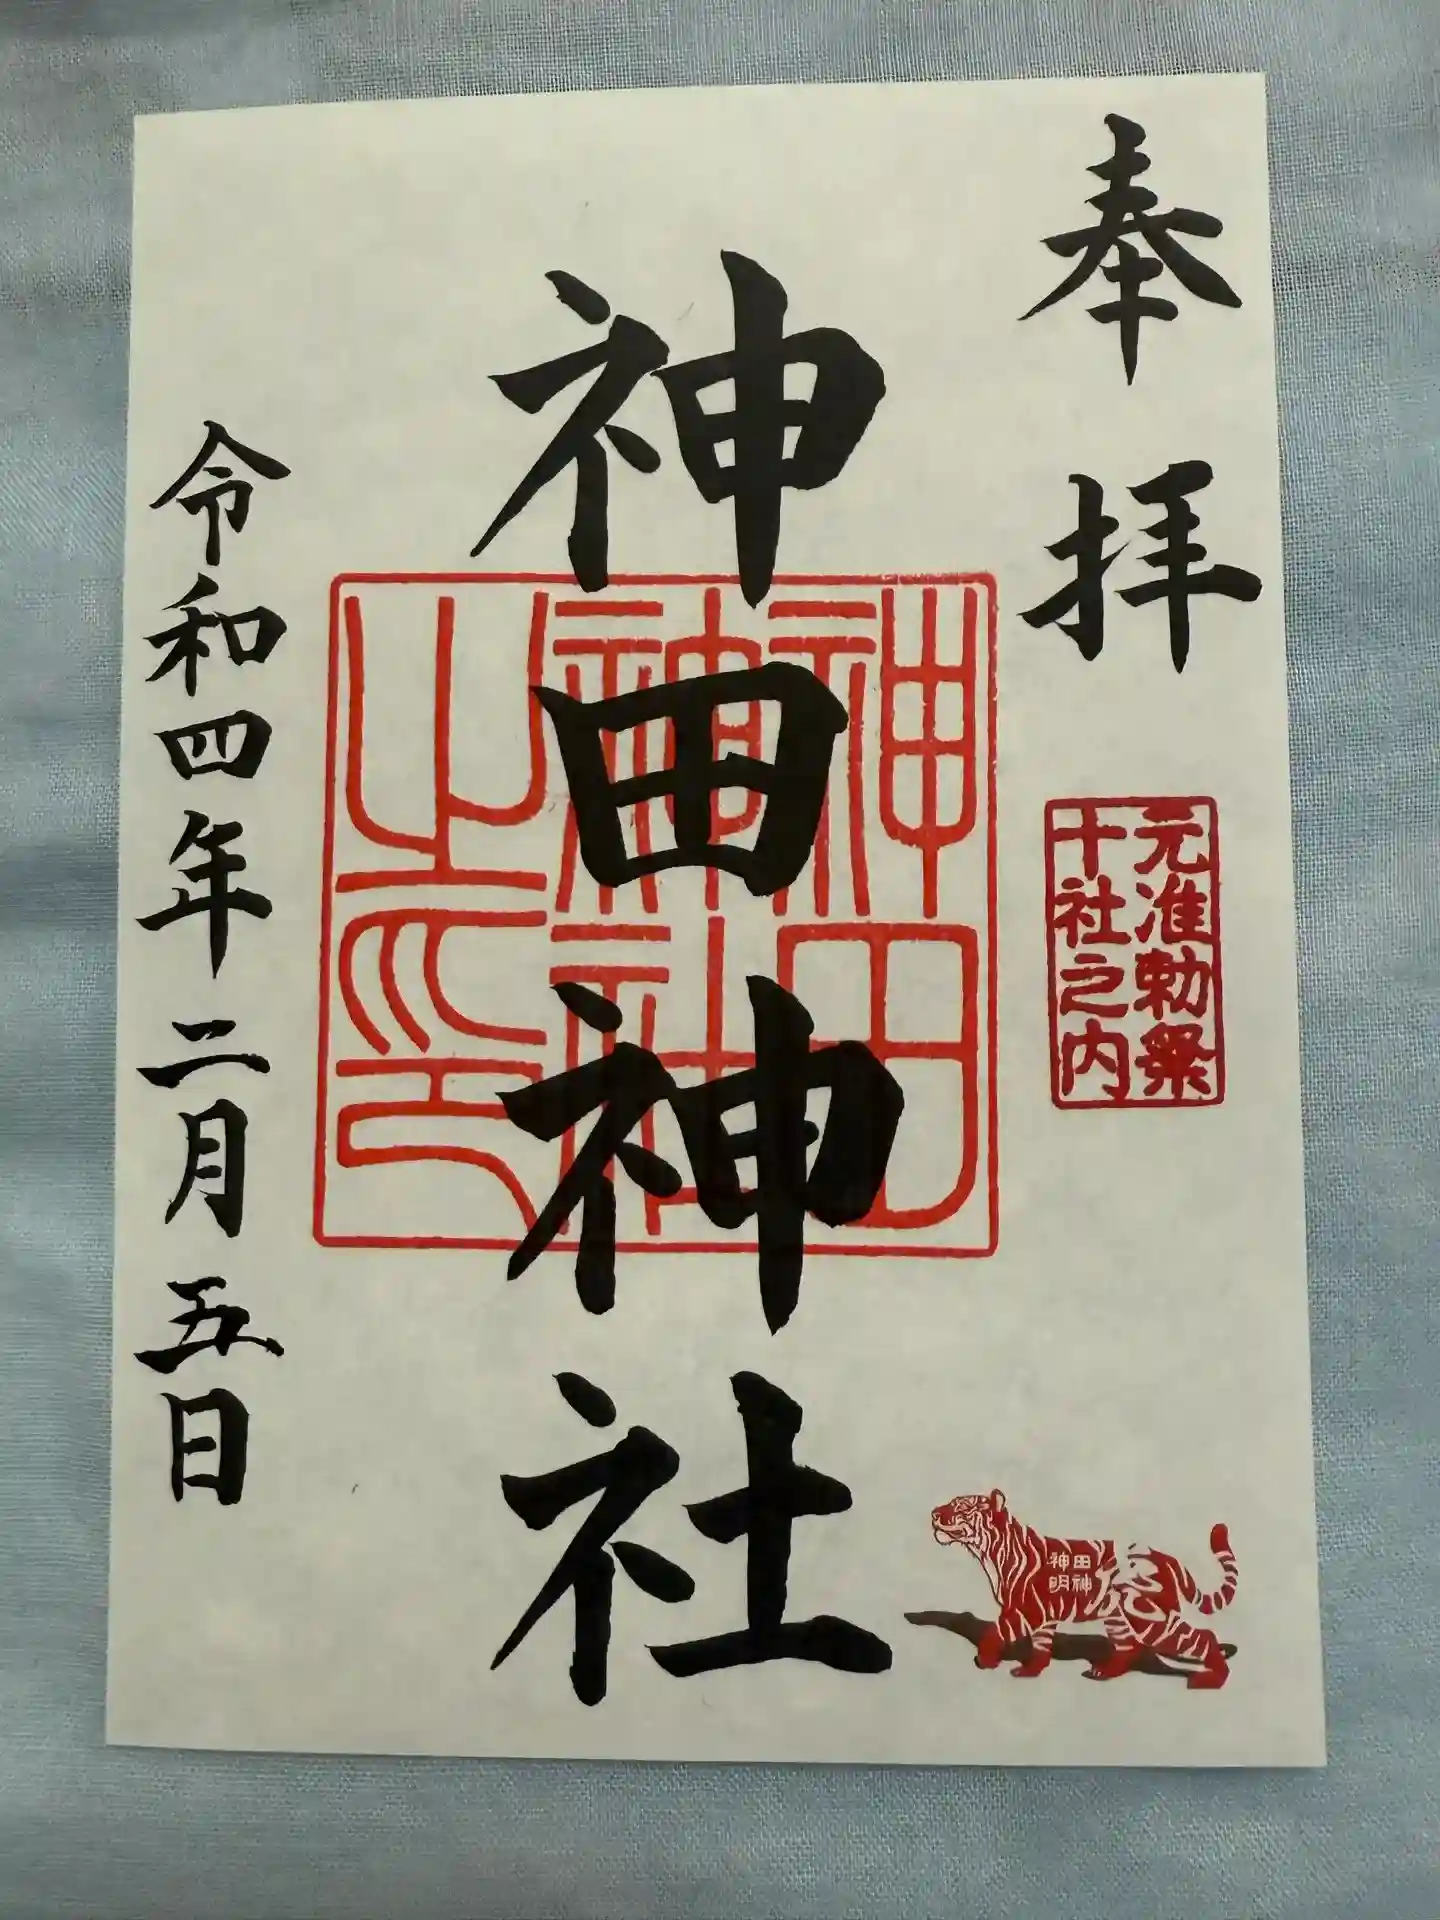 奉拝
元准勅祭
十社之内
神田神社
神田
神社
之印
令和四年二月五日
田神
神明
虎